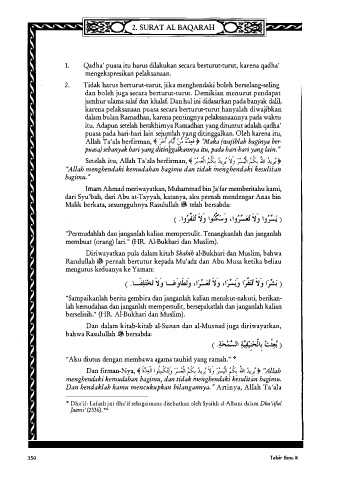 2. SURAT AL BAQARAH
1. Qadha' puasa itu harus dilakukan secara berturut-turut, karena qadha'
mengekspresikan pelaksanaan.
2. Tidak harus berturut-turut, jika menghendaki boleh berselang-seling
dan boleh juga secara berturut-turut. Demikian menurut pendapat
jumhur ulama salaf dan khalaf. Dan hal ini didasarkan pada banyak dalil,
karena pelaksanaan puasa secara berturut-turut hanyalah diwajibkan
dalam bulan Ramadhan, karena pentingnya pelaksanaannya pada waktu
itu. Adapun setelah berakhirnya Ramadhan yang dituntut adalah qadha'
puasa pada hari-hari lain sejumlah yang ditinggalkan. Oleh karena itu,
Allah Ta'ala berfirman, ﴿ فَعِدَّةٌ مِّنْ أَيَّامٍ أُخَرَ ﴾ "Maka (wajiblah baginya ber-
puasa) sebanyak hari yang ditinggalkannya itu, pada hari-hari yang lain."
Setelah itu, Allah Ta'ala berfirman, ﴿ يُرِيدُ اللهُ بِكُمُ الْيُسْرَ وَلاَ يُرِيدُ بِكُمُ الْعُسْرَ ﴾
"Allah menghendaki kemudahan bagimu dan tidak menghendaki kesulitan
bagimu."
Imam Ahmad meriwayatkan, Muhammad bin Ja'far memberitahu kami,
dari Syu'bah, dari Abu at-Tayyah, katanya, aku pernah mendengar Anas bin
Malik berkata, sesungguhnya Rasulullah ﷺ telah bersabda:
( يَسِّرُوا وَلاَ تُعَسِّرُوا، وَسَكِّنُوا وَلاَ تُنَفِّرُوا. )
"Permudahlah dan janganlah kalian mempersulit. Tenangkanlah dan janganlah
membuat (orang) lari." (HR. Al-Bukhari dan Muslim).
Diriwayatkan pula dalam kitab Shahih al-Bukhari dan Muslim, bahwa
Rasulullah ﷺ pernah bertutur kepada Mu'adz dan Abu Musa ketika beliau
mengutus keduanya ke Yaman:
( بَشِّرَا وَلاَ تُنَفِّرَا وَيَسِّرَا، وَلاَ تُعَسِّرَا، وَتَطَاوَعَا وَلاَ تَخْتَلِفَا. )
"Sampaikanlah berita gembira dan janganlah kalian menakut-nakuti, berikan-
lah kemudahan dan janganlah mempersulit, bersepakatlah dan janganlah kalian
berselisih." (HR. Al-Bukhari dan Muslim).
Dan dalam kitab-kitab al-Sunan dan al-Musnad juga diriwayatkan,
bahwa Rasulullah ﷺ bersabda:
( بُعِثْتُ بِالْحَنِيفِيَّةِ السَّمْحَةِ. )
"Aku diutus dengan membawa agama tauhid yang ramah." *
Dan firman-Nya, ﴿ يُرِيدُ اللهُ بِكُمُ الْيُسْرَ وَلاَ يُرِيدُ بِكُمُ الْعُسْرَ وَلِتُكْمِلُوا الْعِدَّةَ ﴾ "Allah
menghendaki kemudahan bagimu, dan tidak menghendaki kesulitan bagimu.
Dan hendaklah kamu mencukupkan bilangannya." Artinya, Allah Ta'ala
* Dha'if: Lafazh ini dha'if sebagaimana disebutkan oleh Syaikh al-Albani dalam Dha'iiful
Jaami' (2336).
350
Tafsir Ibnu K